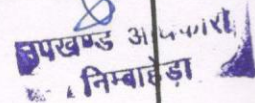 उपखण्ड अधिकारी
निम्बाहेड़ा